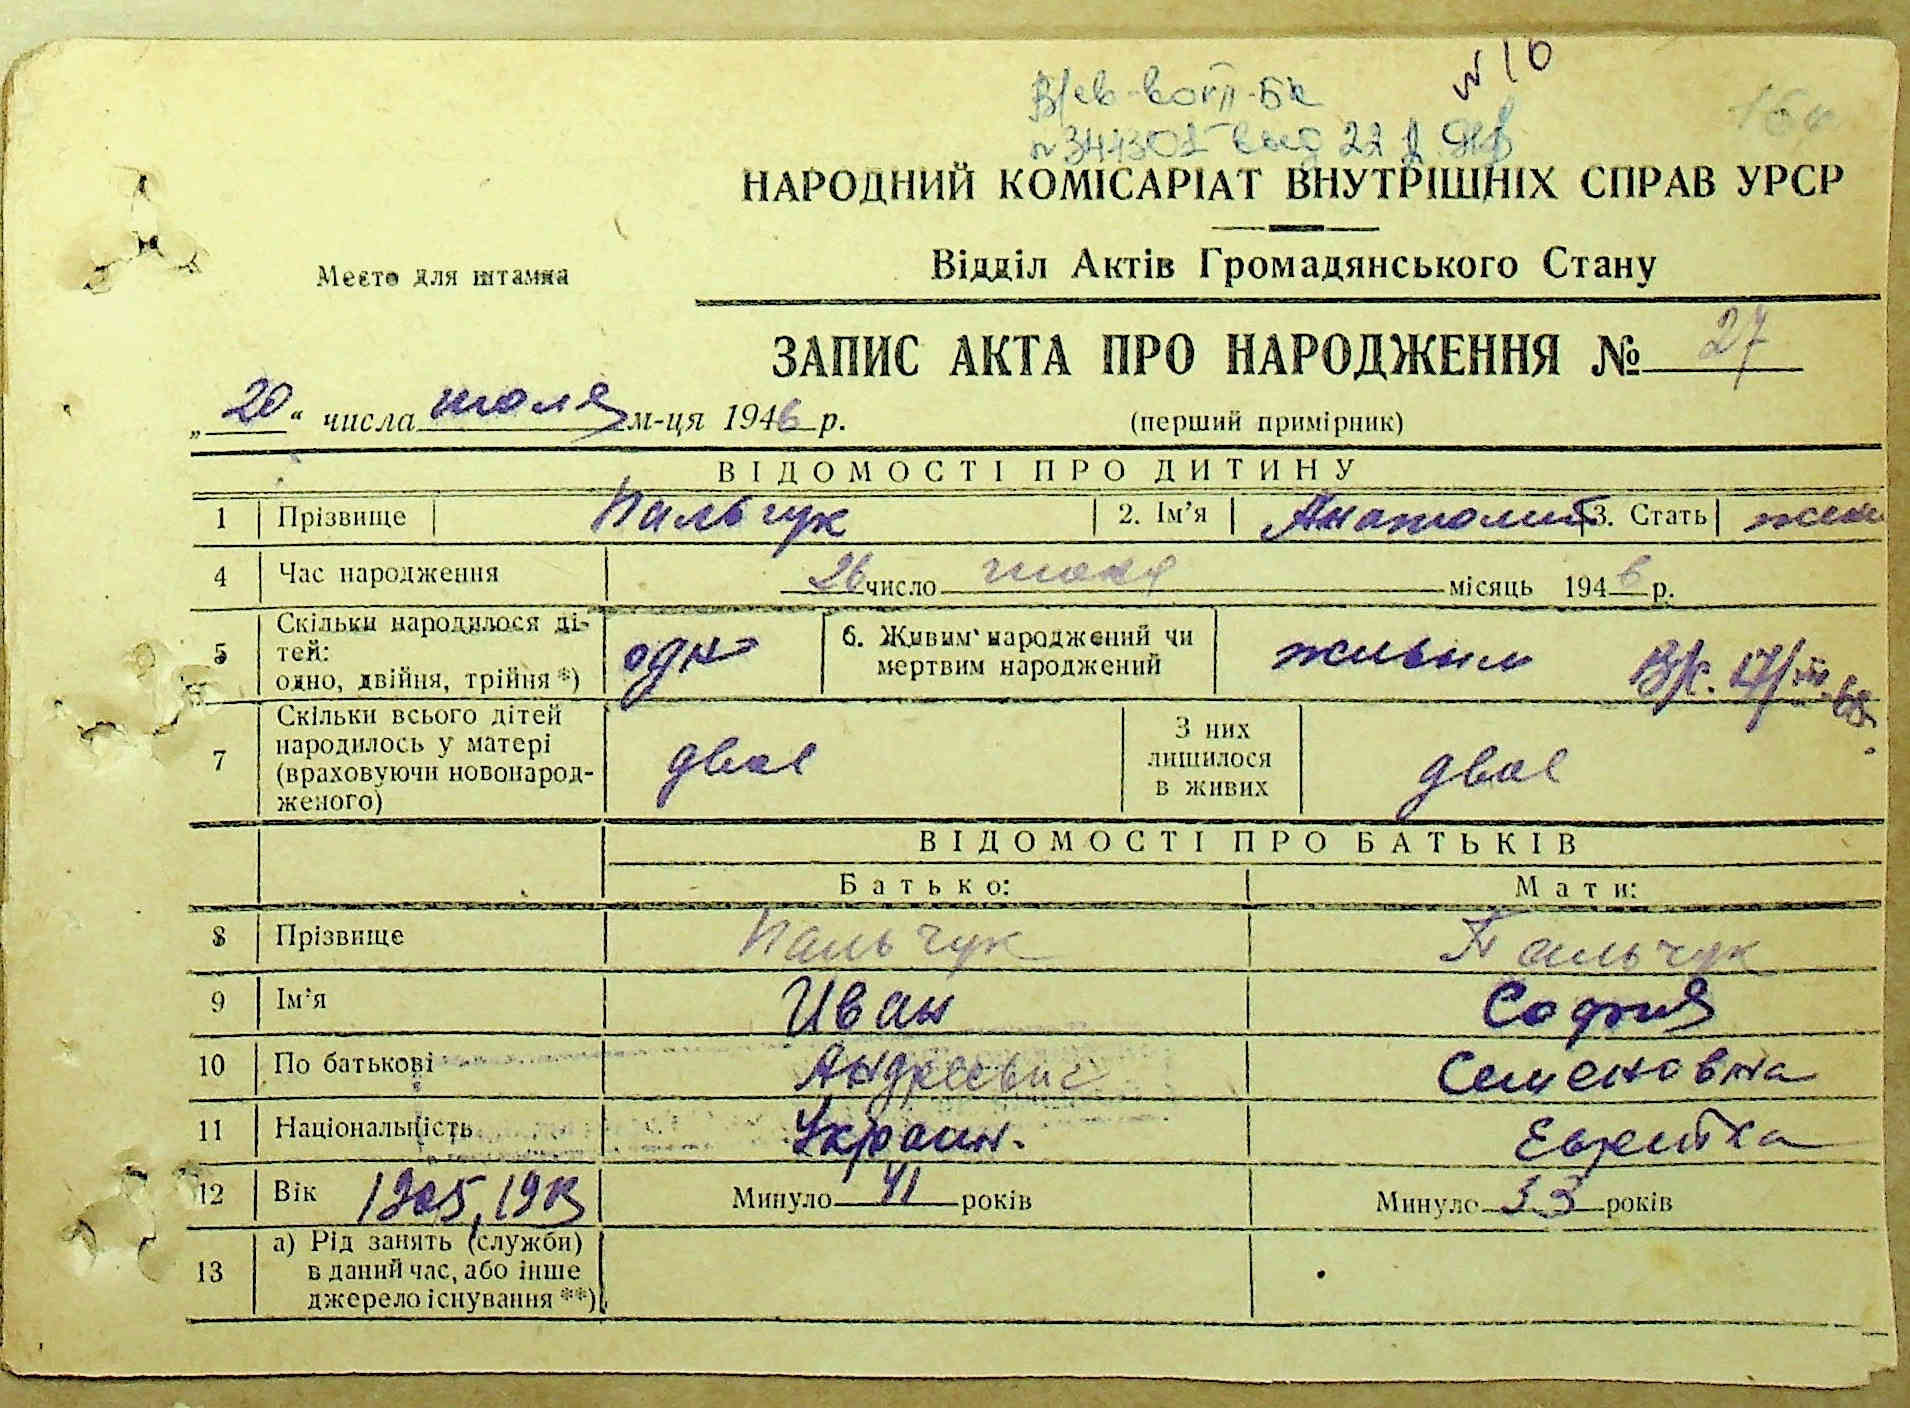 № 16
№344301 выд 22
НАРОДНИЙ КОМІСАРІАТ ВНУТРІШНІХ СПРАВ УРСР
Место для штампа
Відділ Актів Громадянського Стану
ЗАПИС АКТА ПРО НАРОДЖЕННЯ № 27
„20“ числа июля м-ця 1946 р. (перший примірник)
ВІДОМОСТІ ПРО ДИТИНУ
1 Прізвище Пальчук 2. Ім’я Анатолий 3. Стать
4 Час народження 26 число июня місяць 1946 р.
5 Скільки народилося ді-
тей:
одно, двійня, трійня *) одно 6. Живим народжений чи
мертвим народжений живым
7 Скільки всього дітей
народилось у матері
(враховуючи новонарод-
женого) двое З них
лишилося
в живих двое
ВІДОМОСТІ ПРО БАТЬКІВ
Батько: Мати:
8 Прізвище Пальчук Пальчук
9 Ім’я Иван София
10 По батькові Андреевич Семеновна
11 Національність Украин. Еврейка
12 Вік 1905, 1913 Минуло 41 років Минуло 33 років
13 а) Рід занять (служби)
в даний час, або інше
джерело існування **)